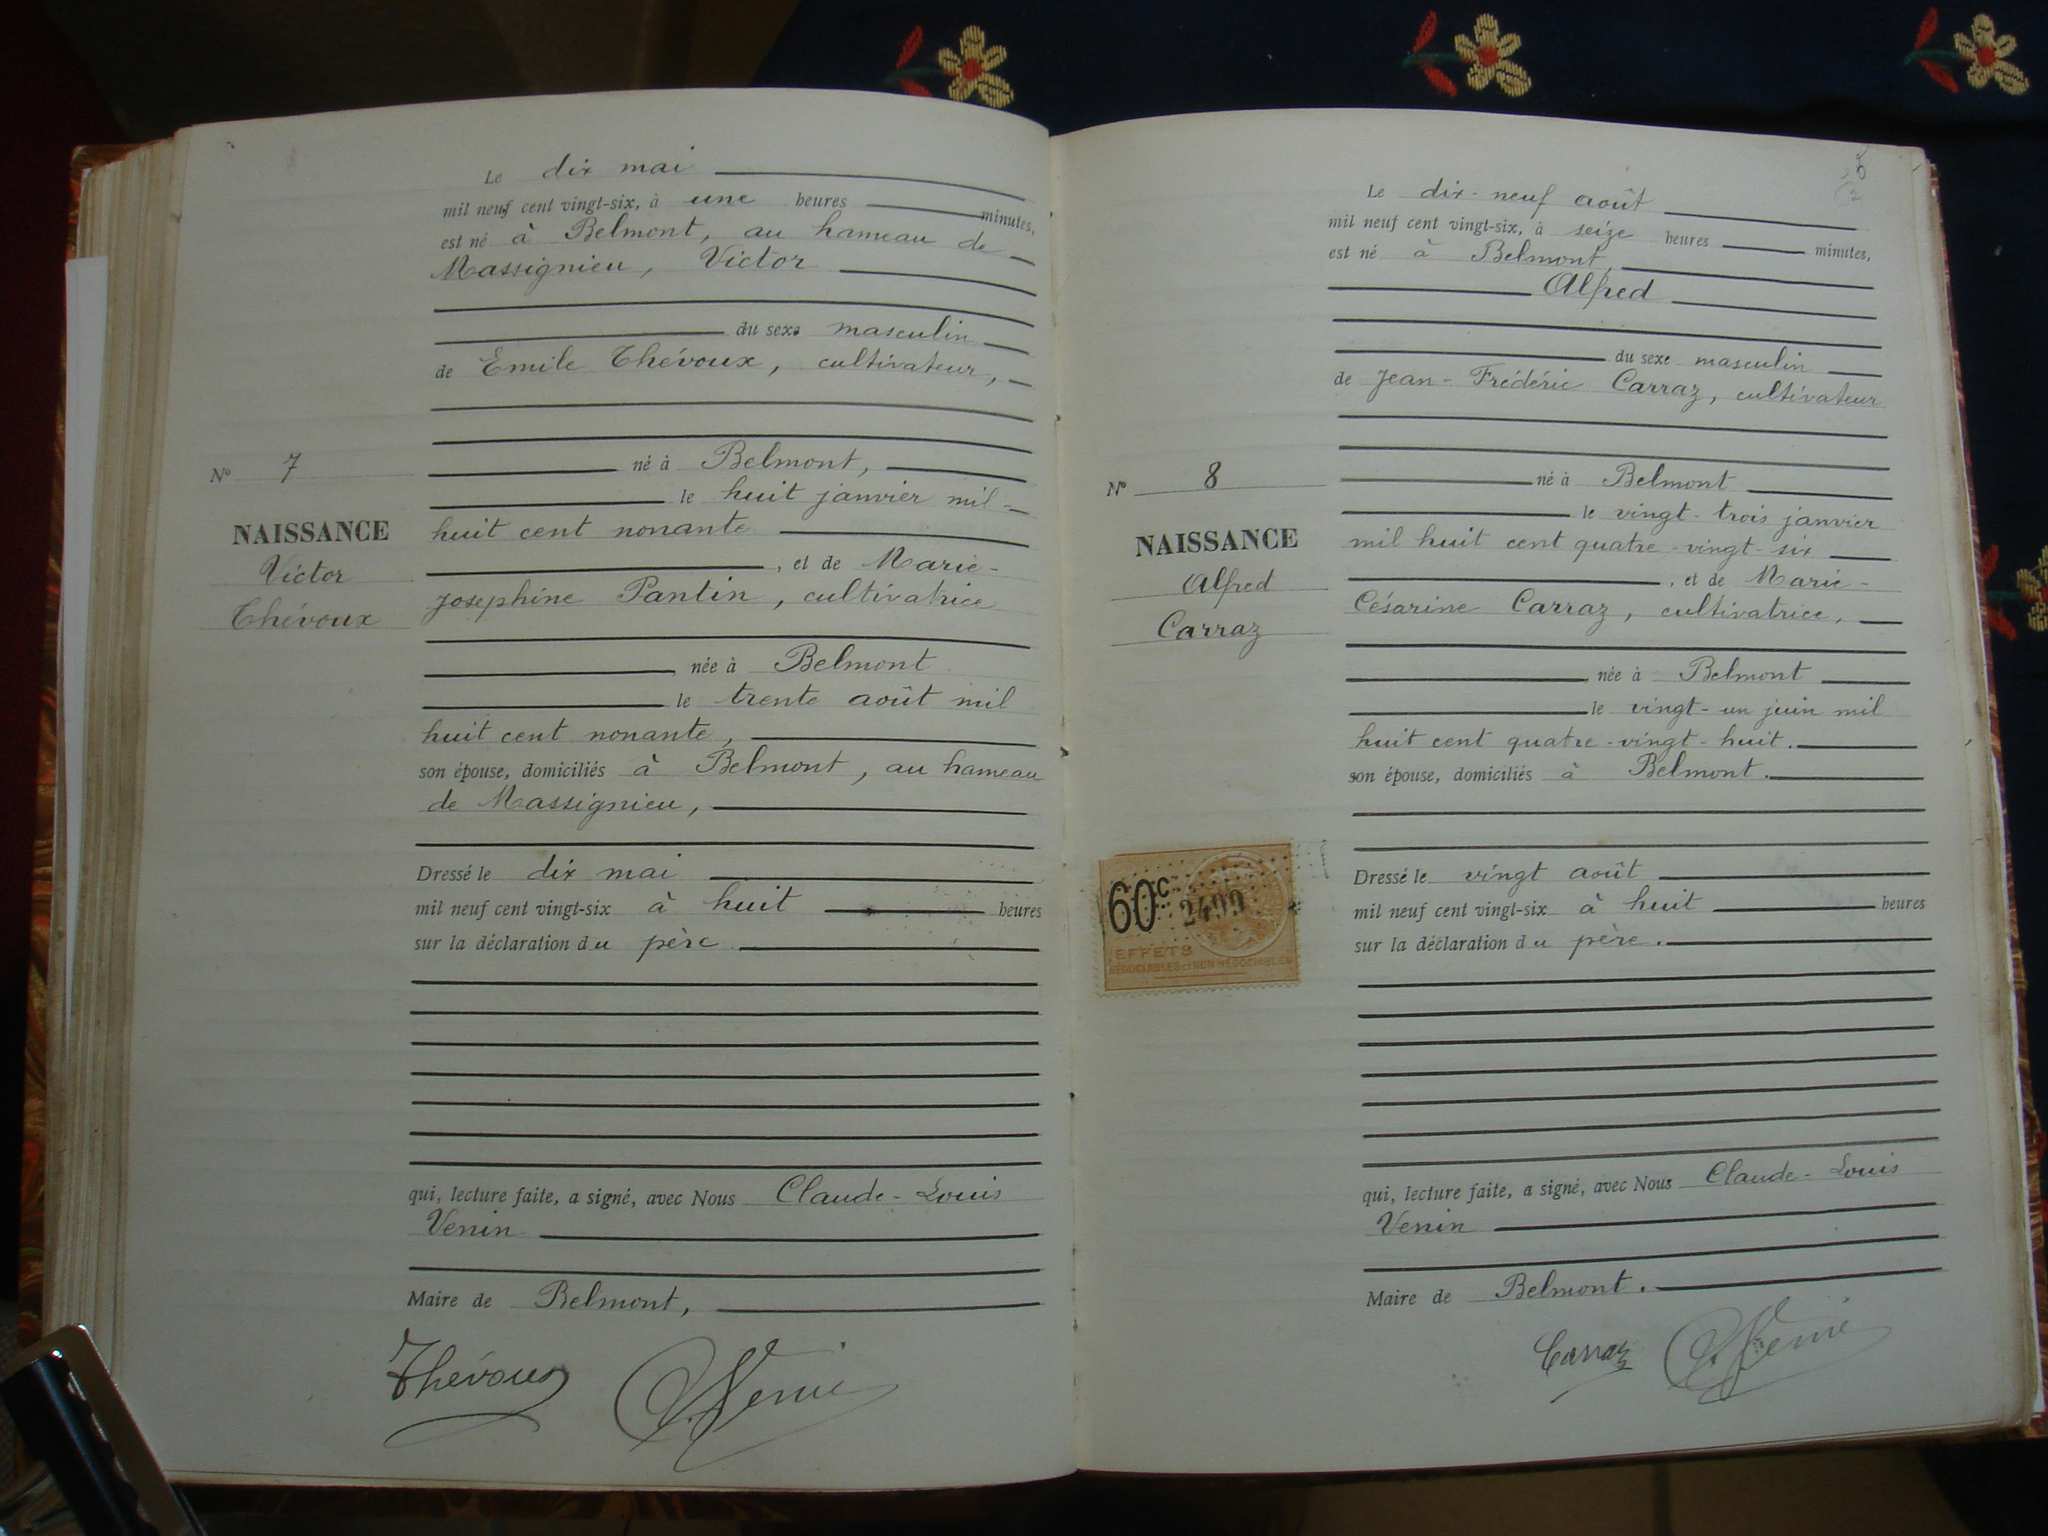 Le dix mai
mil neuf cent vingt-six, à une heures minutes,
est né à Belmont, au hameau de
Massignieu, Victor
du sexe masculin
de Emile Thévoux, cultivateur,
né à Belmont,
le huit janvier mil-
huit cent nonante
, et de Marie-
Josephine Pantin, cultivatrice
née à Belmont
le trente août mil
huit cent nonante,
son épouse, domiciliés à Belmont, au hameau
de Massignieu,
Dressé le dix mai
mil neuf cent vingt-six à huit heures
sur la déclaration du père
qui, lecture faite, a signé, avec Nous Claude-Louis
Venin
Maire de Belmont,
Thévoux
Nº 7
NAISSANCE
Victor
Thévoux
Le dix-neuf août
mil neuf cent vingt-six, à seize heures minutes,
est né à Belmont
Alfred
du sexe masculin
de Jean-Frédéric Carraz, cultivateur
né à Belmont
le vingt-trois janvier
mil huit cent quatre-vingt-six
, et de Marie-
Césarine Carraz, cultivatrice,
née à Belmont
le vingt-un juin mil
huit cent quatre-vingt-huit.
son épouse, domiciliés à Belmont.
Dressé le vingt août
mil neuf cent vingt-six à huit heures
sur la déclaration du père.
qui, lecture faite, a signé, avec Nous Claude-Louis
Venin
Maire de Belmont.
Carraz
Nº 8
NAISSANCE
Alfred
Carraz
60c
2499
EFFETS
NÉGOCIABLES ET NON NÉGOCIABLES